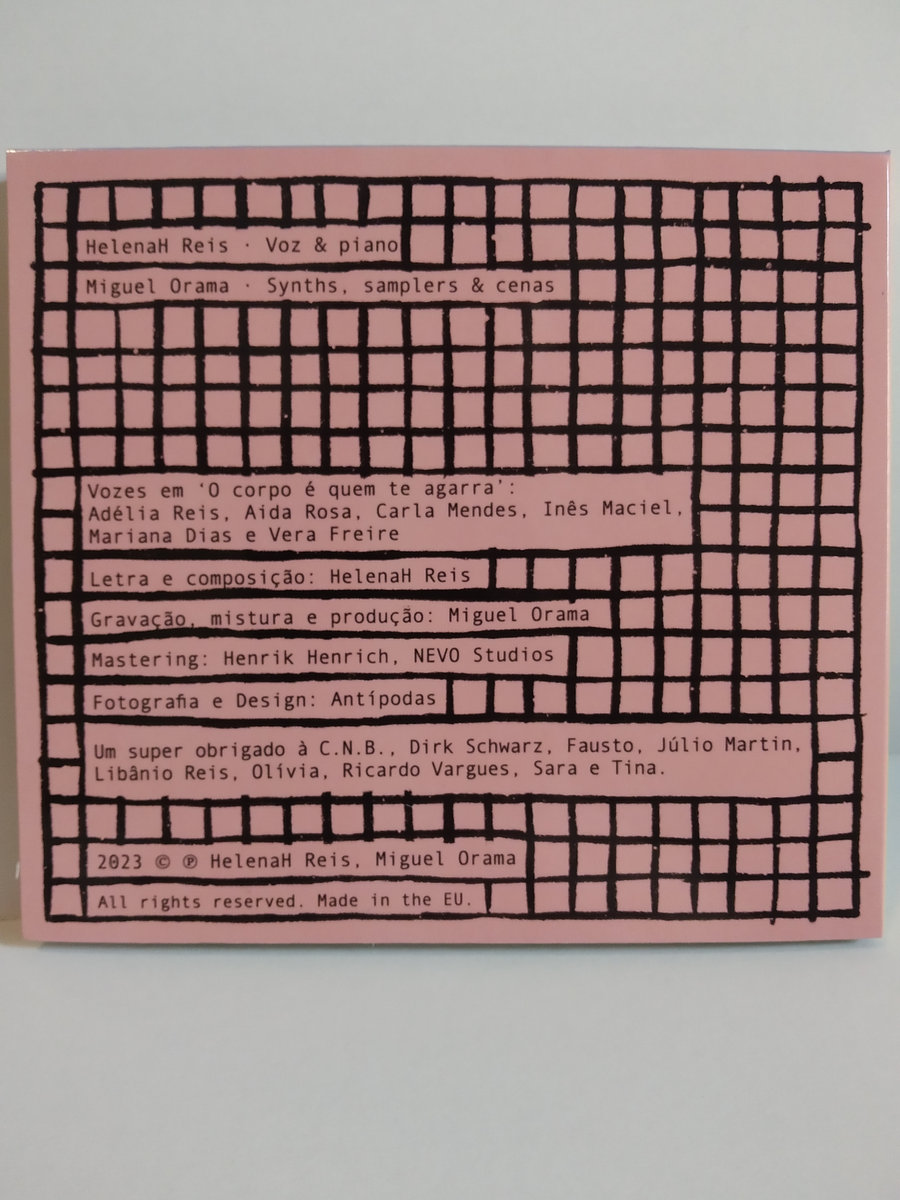 HelenaH Reis · Voz & piano
Miguel Orama · Synths, samplers & cenas
Vozes em ‘O corpo é quem te agarra’:
Adélia Reis, Aida Rosa, Carla Mendes, Inês Maciel,
Mariana Dias e Vera Freire
Letra e composição: HelenaH Reis
Gravação, mistura e produção: Miguel Orama
Mastering: Henrik Henrich, NEVO Studios
Fotografia e Design: Antípodas
Um super obrigado à C.N.B., Dirk Schwarz, Fausto, Júlio Martin,
Libânio Reis, Olívia, Ricardo Vargues, Sara e Tina.
2023 © ℗ HelenaH Reis, Miguel Orama
All rights reserved. Made in the EU.